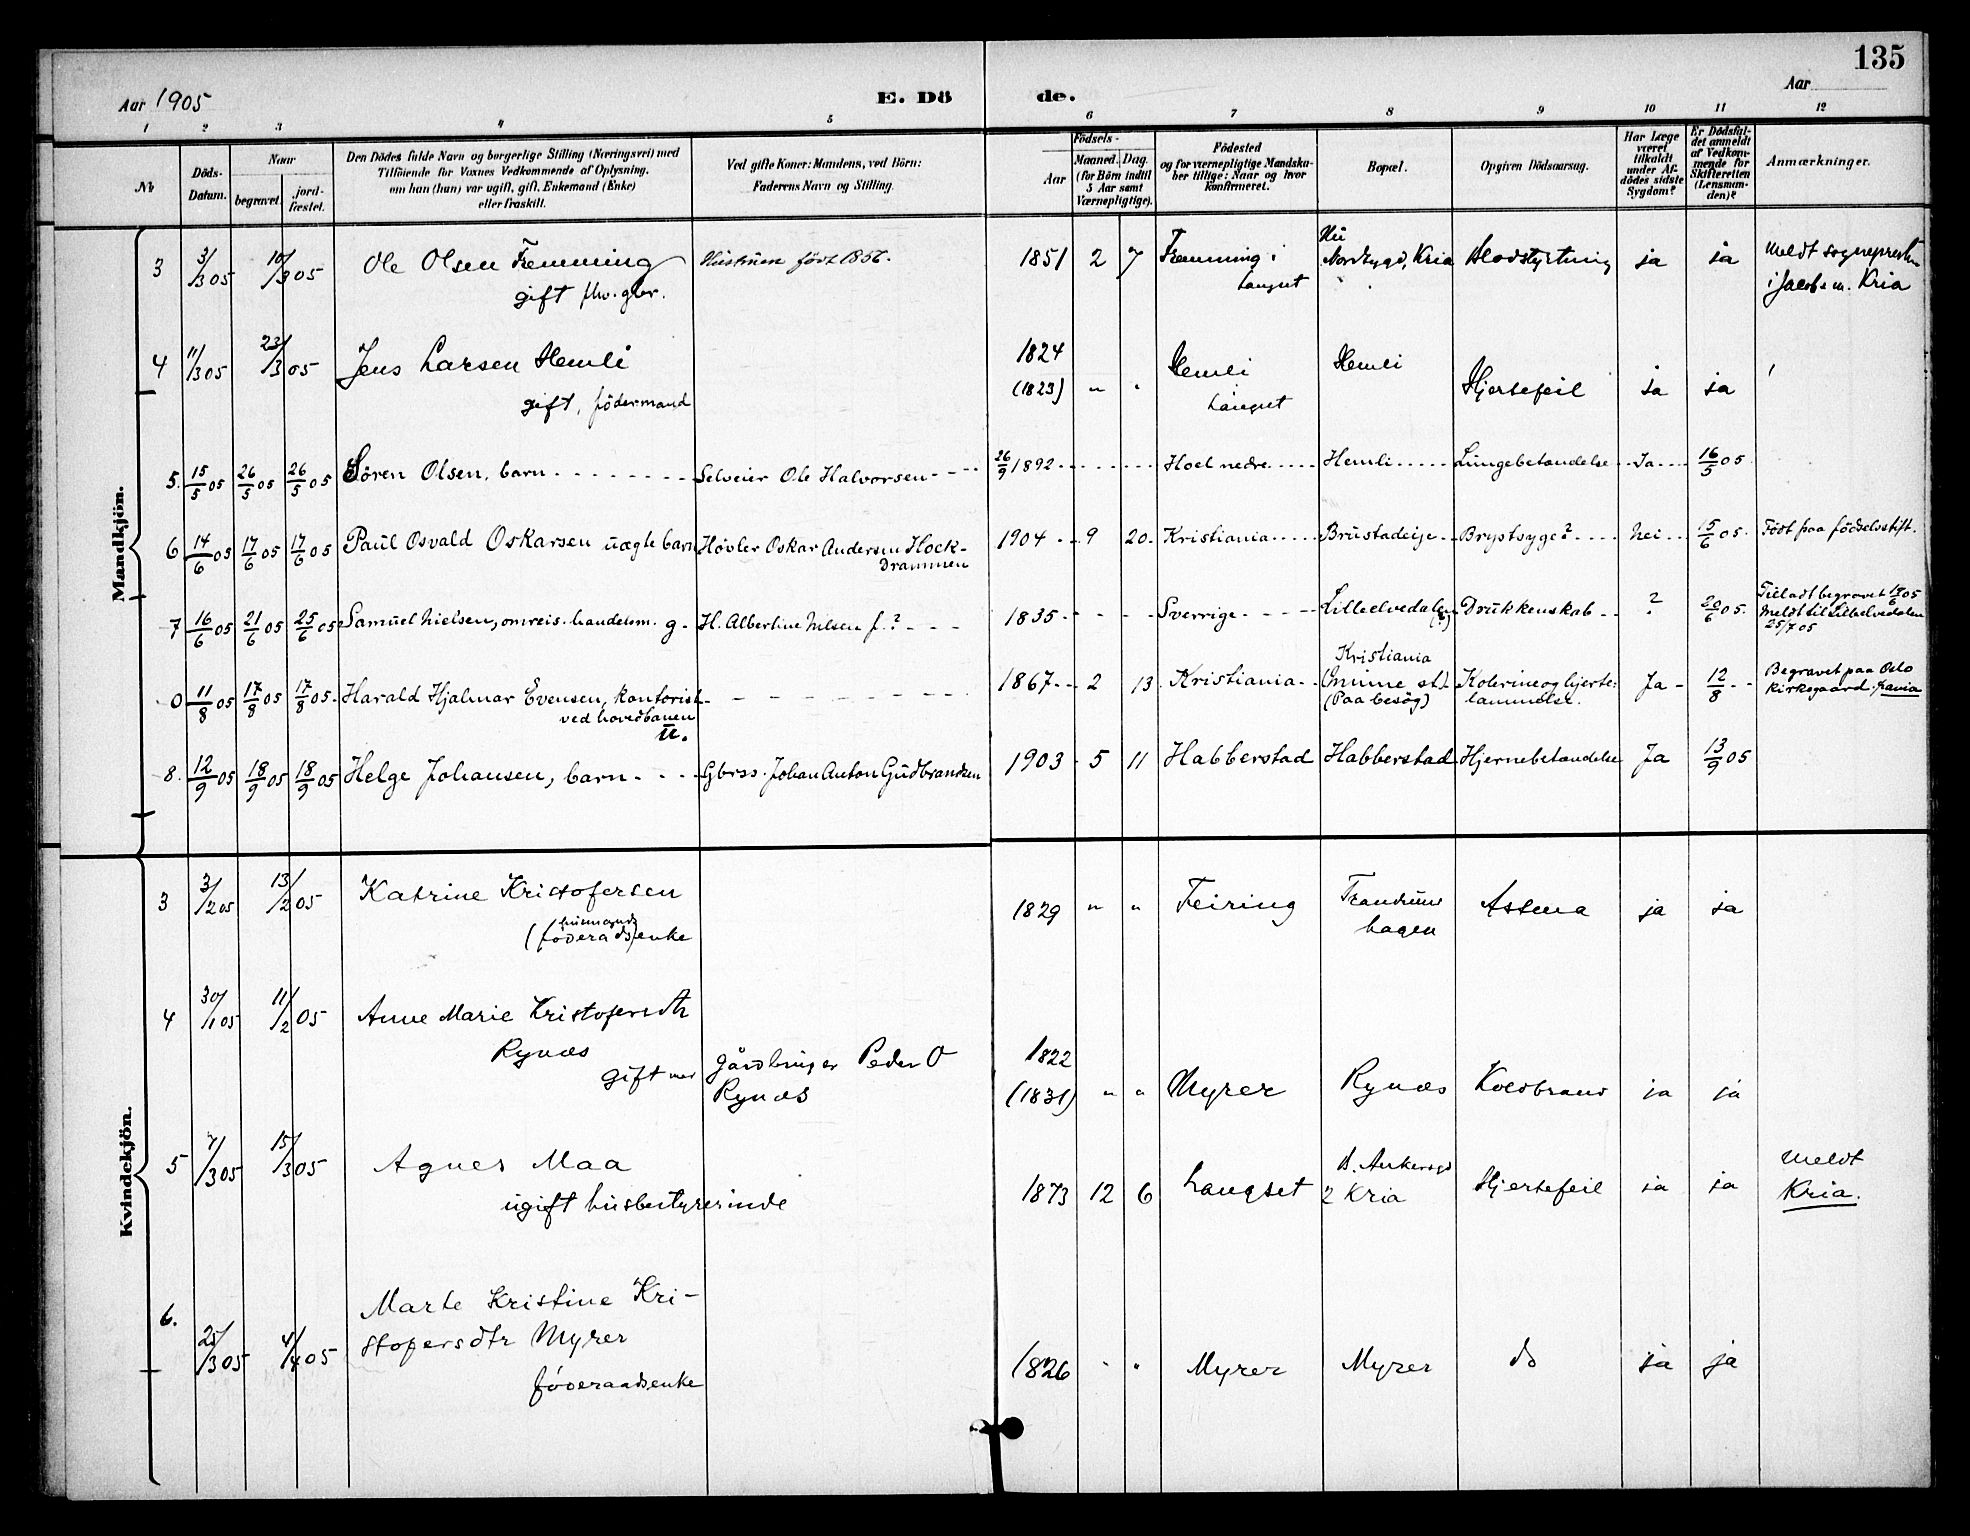 135
Aar 1905
E. Dö
de.
Aar
1 2 3 4 5 6 7 8 9 10 11 12
No
Döds-
Datum.
Naar
begravet.
jord-
fæstet.
Den Dödes fulde Navn og borgerlige Stilling (Næringsvei) med
Tilföiende for Voxnes Vedkommende af Oplysning,
om han (hun) var ugift, gift, Enkemand (Enke)
eller fraskilt.
Ved gifte Koner: Mandens, ved Börn:
Faderens Navn og Stilling.
Födsels-
Aar
Maaned. Dag.
(for Börn indtil
5 Aar samt
Værnepligtige).
Födested
og for værnepligtige Mandska-
ber tillige: Naar og hvor
konfirmeret.
Bopæl.
Opgiven Dödsaarsag.
Har Læge
været
tilkaldt
under Af-
dödes sidste
Sygdom?
Er Dödsfal-
det anmeldt
af Vedkom-
mende for
Skifteretten
(Lensman-
den)?
Anmærkninger.
Mandkjön.
3 3/3 05 10/3 05 Ole Olsen Fremming Hustruen født 1856. 1851 2 7 Fremming i Nordbygd, Kria Blodstyrtning ja ja Meldt sognepresten
gift Langset i Jacobs m. Kria
4 11/3 05 23/3 05 Jens Larsen Hemli 1824 Hemli Hemli
gift, födermand (1823) " " Langset Hjertefeil ja ja
5. 15/5 05 26/5 05 26/5 05 Sören Olsen, barn Selveier Ole Halvorsen 26/9 1892 Hoel nedre Hemli Lungebetændelse Ja 16/5 05
6 14/6 05 17/6 05 17/6 05 Paul Osvald Oskarsen uægte barn Høvler Oskar Andersen Hock- 1904 9 20 Kristiania Brustadeije Brystsyge? nei 15/6 05. Födt paa födselsstift.
Drammen
7 16/6 05 21/6 05 25/6 05 Samuel Nielsen, omreis. handelsm. g. H. Albertine Nilsen f. ? 1835 Sverrige Lilleelvedalen (?) Drukkenskab ? 20/6 05. Tilladt begravet 19/6 05
Meldt til Lilleelvedalen
25/7 05
0 11/8 05 17/8 05 17/8 05 Harald Hjalmar Evensen, kontorist 1867 2 13 Kristiania Kristiania Kolerine og hjerte- Ja 12/8 Begravet paa Oslo
ved hovedbanen (Paa besög) lammelse. kirkegaard.
u.
8. 12/9 05 18/9 05 18/9 05 Helge Johansen, barn Gbrss. Johan Anton Gudbrandsen 1903 5 11 Habberstad Habberstad Hjernebetændelse Ja 13/9 05
Kvindekjön.
3 3/2 05 13/2 05 Katrine Kristofersen 1829 " " Feiring Trandum Astma ja ja
husmands hagen
(föderads) enke
4 30/1 05 11/2 05 Anne Marie Kristofersdtr
Rynæs 1822
gift med gårdbruger Peder O (1831) " " Myrer Rynæs Koldbrand ja ja
Rynæs
5 7/3 05 15/3 05 Agnes Maa 1873 12 6 Langset B. Ankersgd Hjertefeil ja ja Meldt
ugift husbestyrerinde 2 Kria Kria.
6. 25/3 05 4/4 05 Marte Kristine Kri-
stofersdtr Myrer 1826 " " Myrer Myrer do ja ja
föderaadsenke